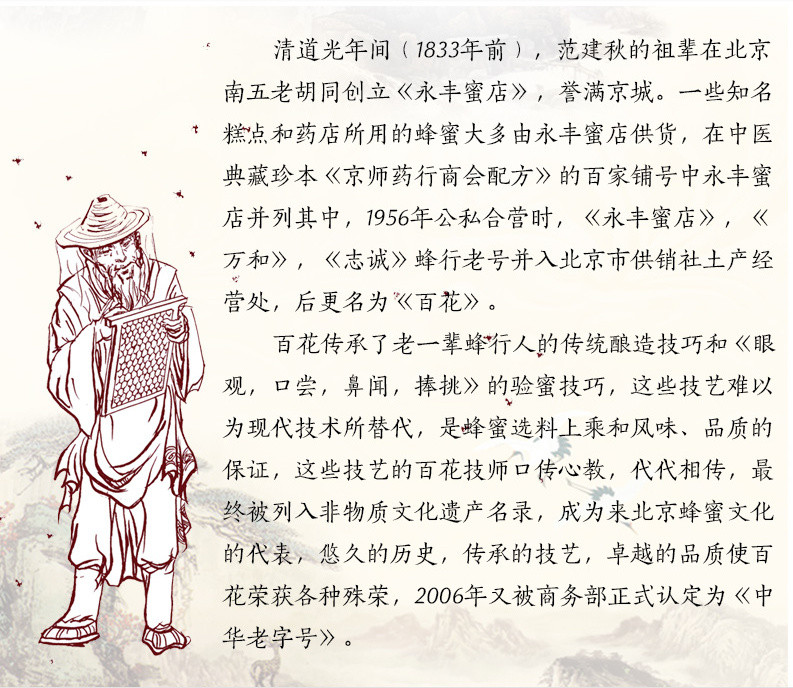 清道光年间（1833年前），范建秋的祖辈在北京
南五老胡同创立《永丰蜜店》，誉满京城。一些知名
糕点和药店所用的蜂蜜大多由永丰蜜店供货，在中医
典藏珍本《京师药行商会配方》的百家铺号中永丰蜜
店并列其中，1956年公私合营时，《永丰蜜店》，《
万和》，《志诚》蜂行老号并入北京市供销社土产经
营处，后更名为《百花》。
百花传承了老一辈蜂行人的传统酿造技巧和《眼
观，口尝，鼻闻，捧挑》的验蜜技巧，这些技艺难以
为现代技术所替代，是蜂蜜选料上乘和风味、品质的
保证，这些技艺的百花技师口传心教，代代相传，最
终被列入非物质文化遗产名录，成为来北京蜂蜜文化
的代表，悠久的历史，传承的技艺，卓越的品质使百
花荣获各种殊荣，2006年又被商务部正式认定为《中
华老字号》。